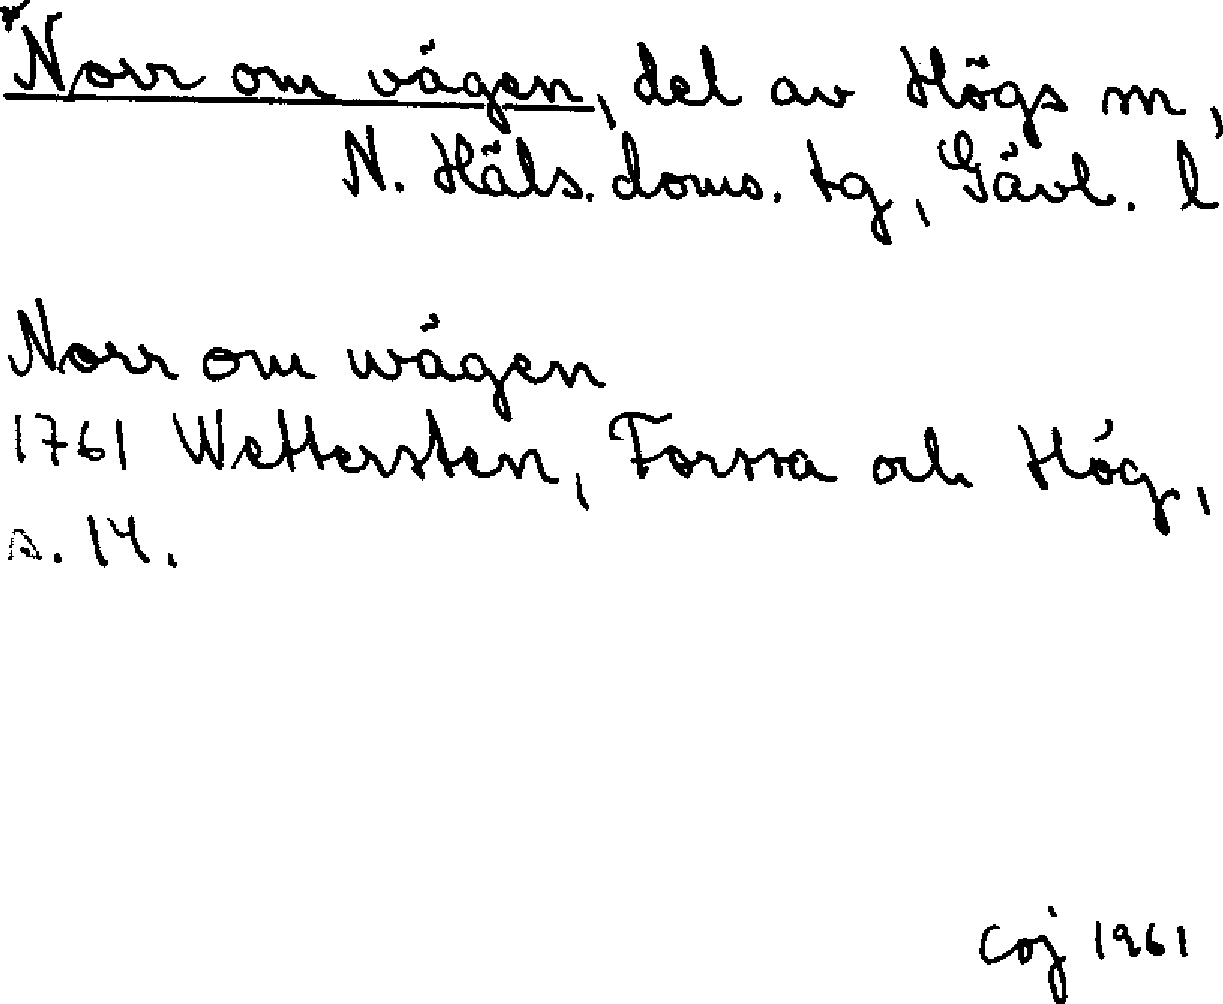 *Norr om vägen, del av Högs sn,
N. Häls. doms. tg, Gävl. l
Norr om wägen
1761 Wettersten, Forssa och Hög,
s. 14.
Coj 1961